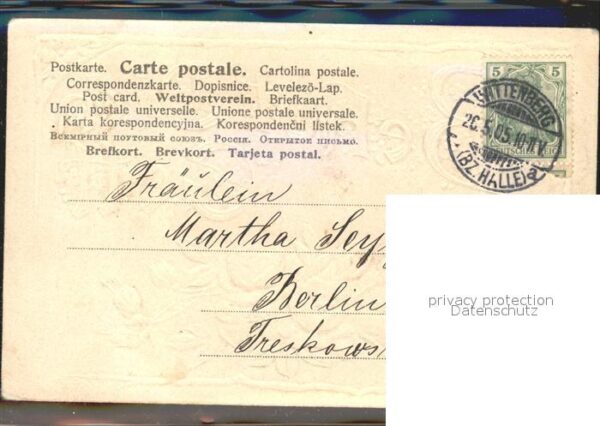 Postkarte. Carte postale. Cartolina postale.
Correspondenzkarte. Dopisnice. Levelező-Lap.
Post card. Weltpostverein. Briefkaart.
Union postale universelle. Unione postale universale.
Karta korespondencyjna. Korespondenční lístek.
Всемірный почтовый союзъ. Россія. Открытое письмо.
Brefkort. Brevkort. Tarjeta postal.
5 5
DEUTSCHES REICH
26.5.05.
(BZ. HALLE)
Fräulein
Martha Sey
Berlin
Treskows
privacy protection
Datenschutz